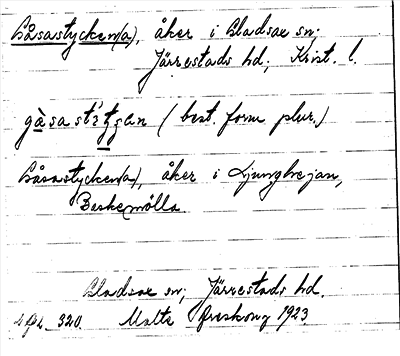 Gåsastycken(a), åker i Gladsax sn;
Järrestads hd; Krist. l.
gåsast
(best. form plur.)
Gåsastycken(a), åker i Ljunghejan,
Baskemölla.
Gladsax sn; Järrestads hd.
320. Malte 1923.